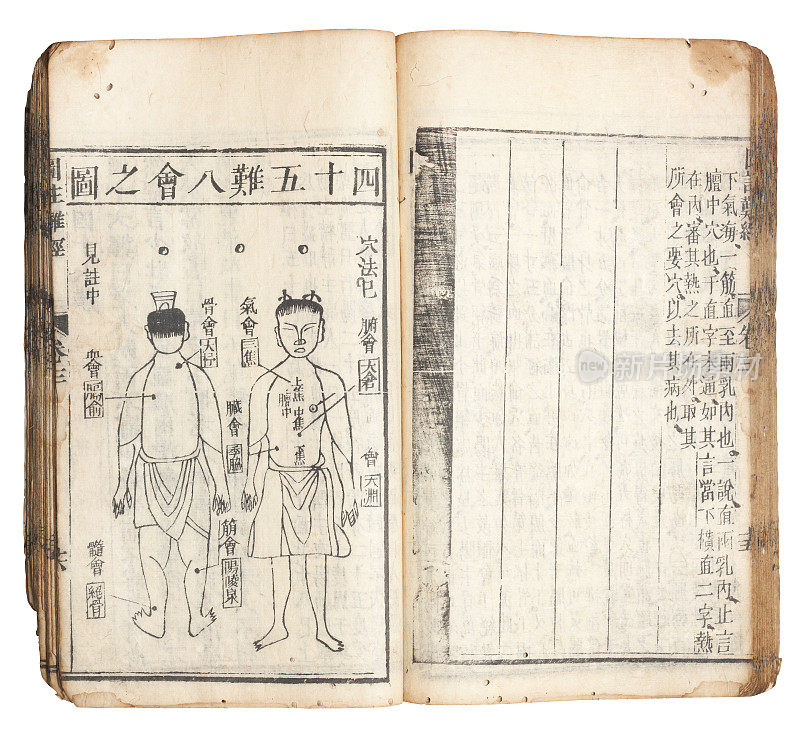 下氣海、一筋血至兩乳內也、一說直兩乳內止言
膻中穴也、于直字不通如其言當下橫直二字熱
在內、審其熱之所在外取其
所會之要穴、以去其病也
四十五難八會之圖
穴法已
見註中
腑會
太倉
氣會
三焦
上焦
中焦
膻中
下焦
臟會
季脇
會
太淵
骨會
大杼
血會
膈俞
筋會
陽陵泉
髓會
絕骨
圖註難經
iStock